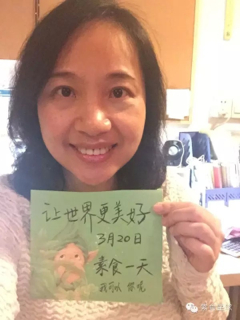 让世界更美好
3月20日
素食一天
我可以 你呢